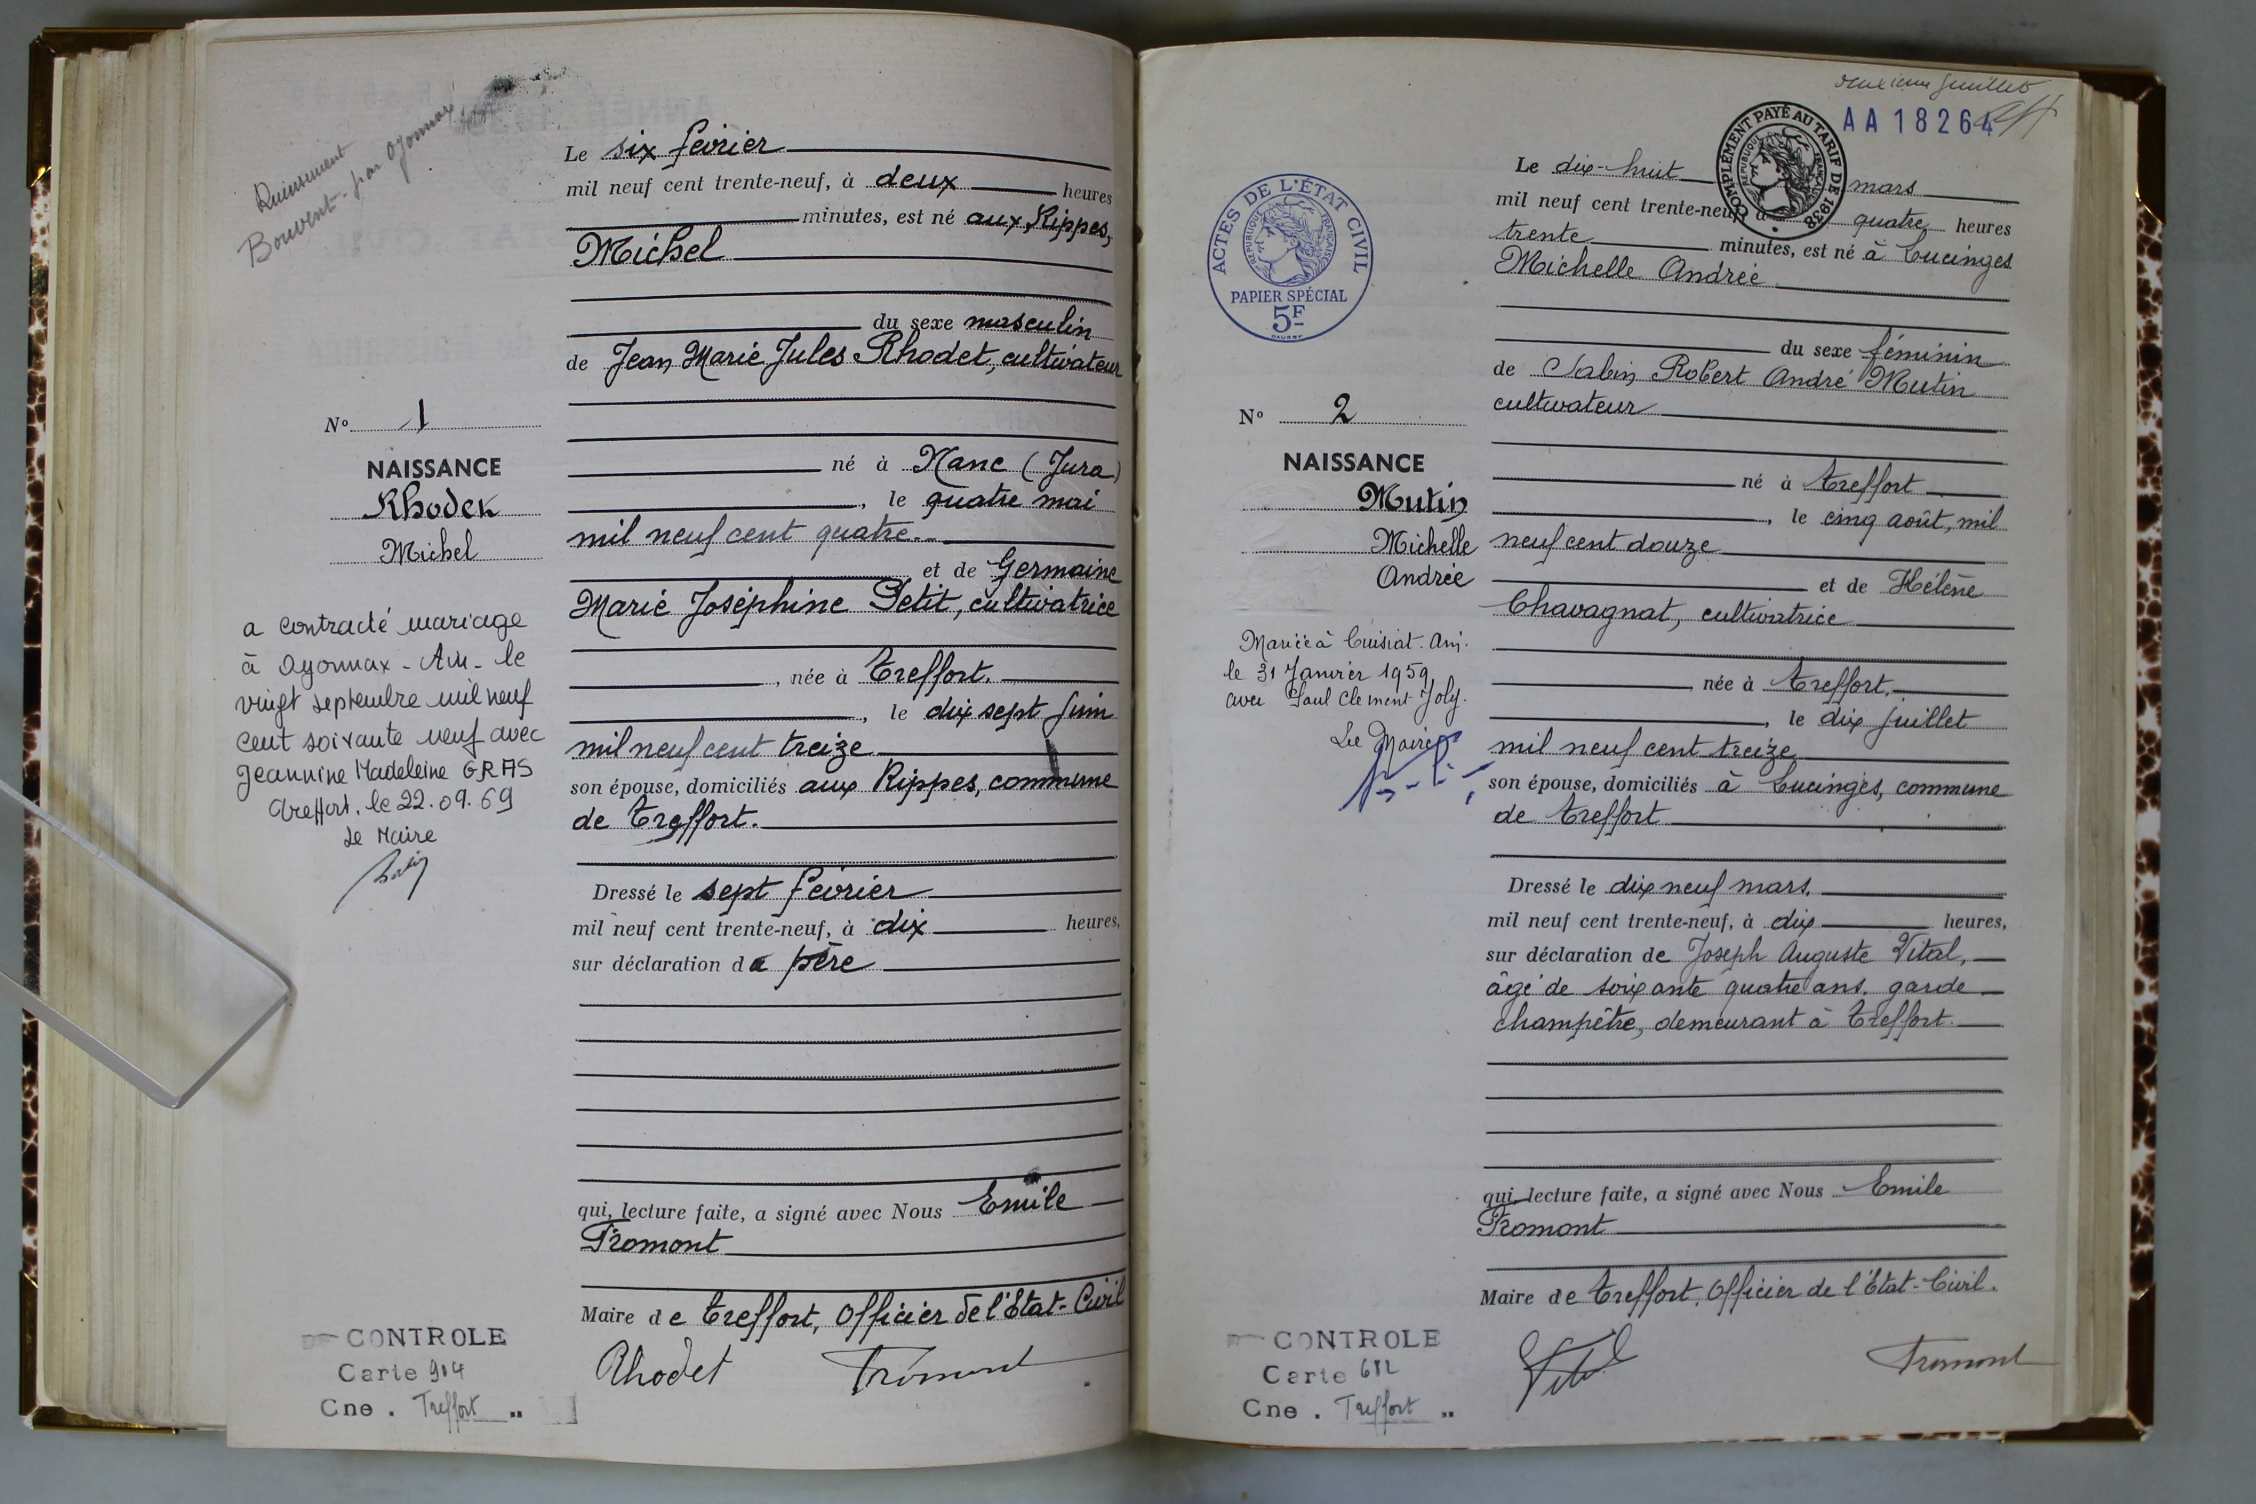 Bouvent - par Oyonnax
Le six février
mil neuf cent trente-neuf, à deux heures
minutes, est né aux Rippes,
Michel
du sexe masculin
de Jean Marie Jules Rhodet, cultivateur
N° 1
NAISSANCE
Rhodet
Michel
né à Nanc (Jura)
, le quatre mai
mil neuf cent quatre.
et de Germaine
Marie Joséphine Petit, cultivatrice
, née à Treffort.
, le dix sept juin
mil neuf cent treize
son épouse, domiciliés aux Rippes, commune
de Treffort.
a contracté mariage
à Oyonnax - Ain - le
vingt septembre mil neuf
cent soixante neuf avec
Jeannine Madeleine GRAS
Treffort, le 22.09.69
Le Maire
Dressé le sept février
mil neuf cent trente-neuf, à dix heures,
sur déclaration du père
qui, lecture faite, a signé avec Nous Emile
Fromont
Maire de Treffort, Officier de l'Etat-Civil
Rhodet Fromont
CONTROLE
Carte 904
Cne . Treffort "
deuxième feuillet
AA 18264
COMPLÉMENT PAYÉ AU TARIF DE 1938
RÉPUBLIQUE FRANÇAISE
ACTES DE L'ÉTAT CIVIL
RÉPUBLIQUE FRANÇAISE
PAPIER SPÉCIAL
5F
Le dix-huit mars
mil neuf cent trente-neuf, à quatre heures
trente minutes, est né à Lucinges
Michelle Andrée
du sexe féminin
de Sabin Robert André Mutin
cultivateur
N° 2
NAISSANCE
Mutin
Michelle
Andrée
né à Treffort
, le cinq août, mil
neuf cent douze
et de Hélène
Chavagnat, cultivatrice
née à Treffort.
, le dix juillet
mil neuf cent treize
son épouse, domiciliés à Lucinges, commune
de Treffort
Mariée à Cuisiat. Ain.
le 31 Janvier 1959
avec Paul Clément Joly.
Le Maire
Dressé le dix neuf mars.
mil neuf cent trente-neuf, à dix heures,
sur déclaration de Joseph Auguste Vital,
âgé de soixante quatre ans. garde
champêtre, demeurant à Treffort.
qui, lecture faite, a signé avec Nous Emile
Fromont
Maire de Treffort, Officier de l'Etat-Civil.
Vital Fromont
CONTROLE
Carte 682
Cne . Treffort "